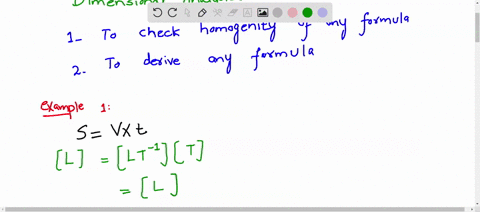 1- To check homogenity of any formula
2- To derive any formula
Example 1:
S = V x t
[L] = [LT⁻¹] [T]
= [L]